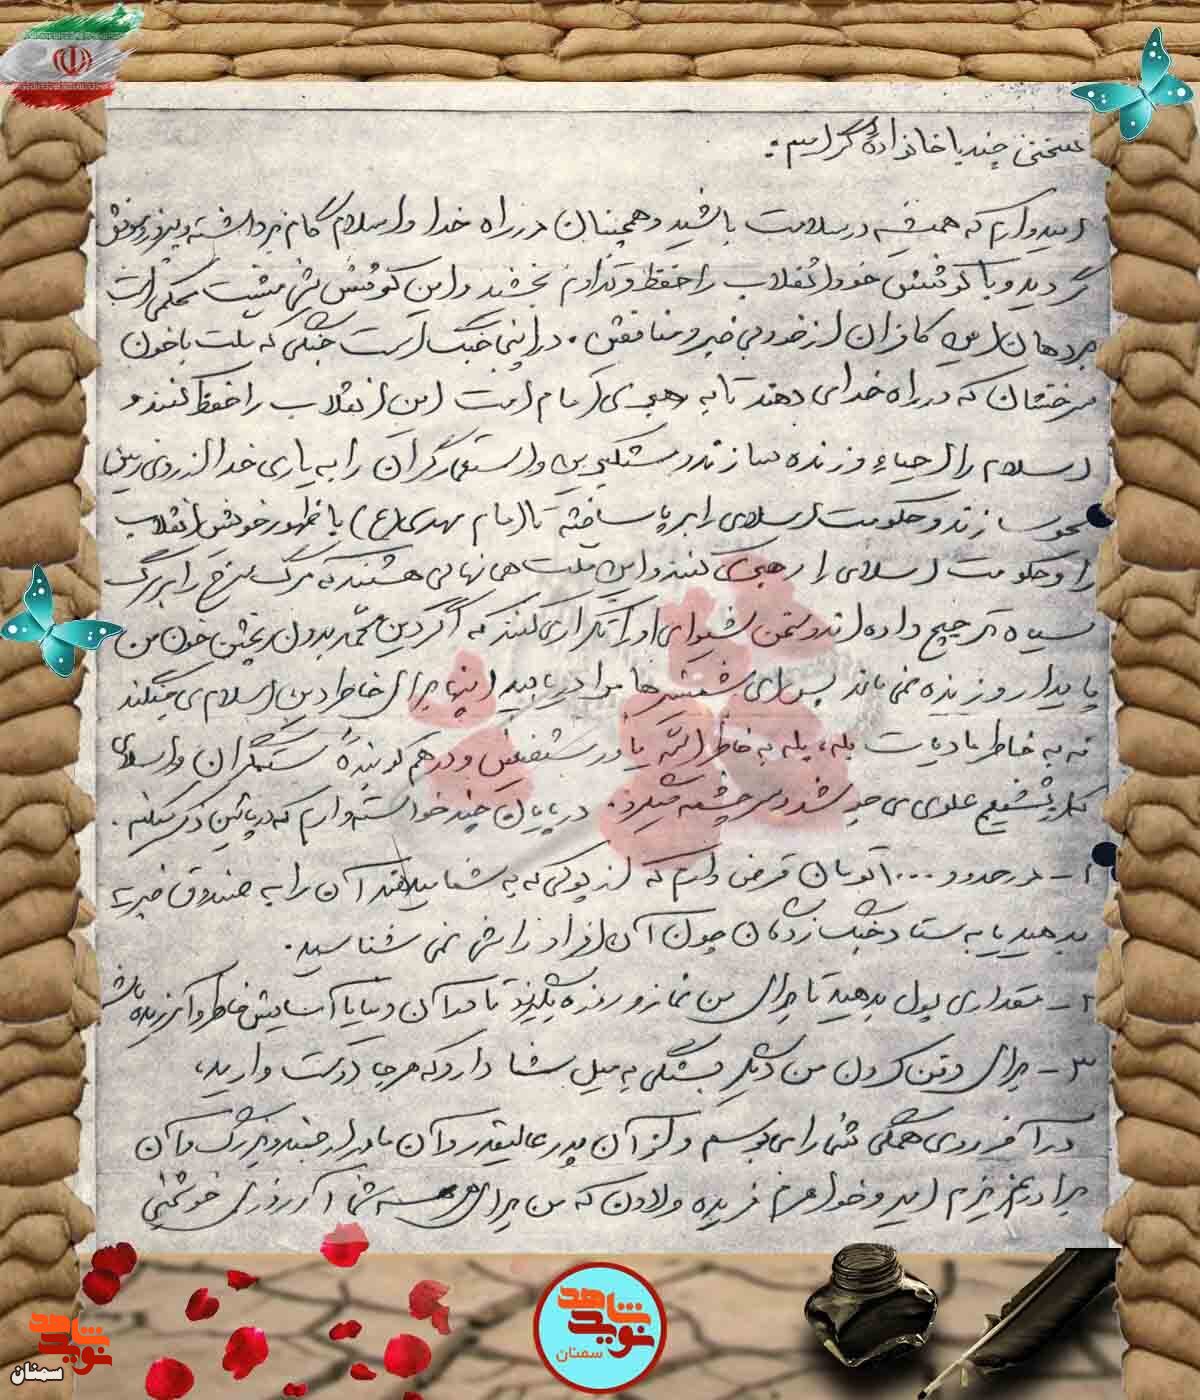 سخنی چند با خانواده گرامیم:
امیدوارم که همیشه در سلامت باشید و همچنان در راه خدا و اسلام گام برداشته و پیروز و موفق
گردید و با کوشش خود انقلاب را حفظ و تداوم بخشید و این کوشش شما مشت محکمی است
بر دهان این کافران از خود بی خبر و منافقین. در اینجا جنگ است جنگی که ملت با خون
سرخشان که در راه خدا می دهند تا به رهبری امام امت این انقلاب را حفظ کنند و
اسلام را احیاء و زنده سازند و مستکبرین و استعمارگران را به یاری خدا از روی زمین
محو سازند و حکومت اسلامی را برپا ساخته تا امام مهدی (ع) با ظهور خویش انقلاب
را و حکومت اسلامی را رهبری کنند و این ملت همانهائی هستند که مرگ سرخ را بر مرگ
سیاه ترجیح داده اند و سخن شیوای او را تکرار می کنند که اگر دین محمد بدون ریختن خون من
پایدار و زنده نمی ماند پس ای شمشیرها مرا دریابید اینها برای خاطر دین اسلام می جنگند
نه به خاطر مادیات بله، بله به خاطر الله یاور مستضعفین و درهم کوبنده ستمگران و اسلام
که از تشیع علوی می جوشد و سرچشمه میگیرد. در پایان چند خواسته دارم که در پائین ذکر میکنم.
۱- در حدود ۱۰۰۰ تومان قرض دارم که از پولی که به شما میدهند آن را به صندوق خیریه
بدهید یا به ستاد جنگ زدگان چون آن افراد را من نمی شناسم.
۲- مقداری پول بدهید تا برای من نماز و روزه بگیرند تا در آن دنیا با آسایش خاطر
۳- برای دفن کردن من دیگر بستگی به میل شما دارد که هر جا دوست دارید،
در آخر روی همگی شما را می بوسم و از آن پدر عالیقدر و آن مادر ارجمند و بزرگ و آن
برادر عزیزم امیر و خواهرم فریده و لادن که من برای همه شما آرزوی خوشبختی
شاهد
نوید
سمنان
نوید شاهد
سمنان